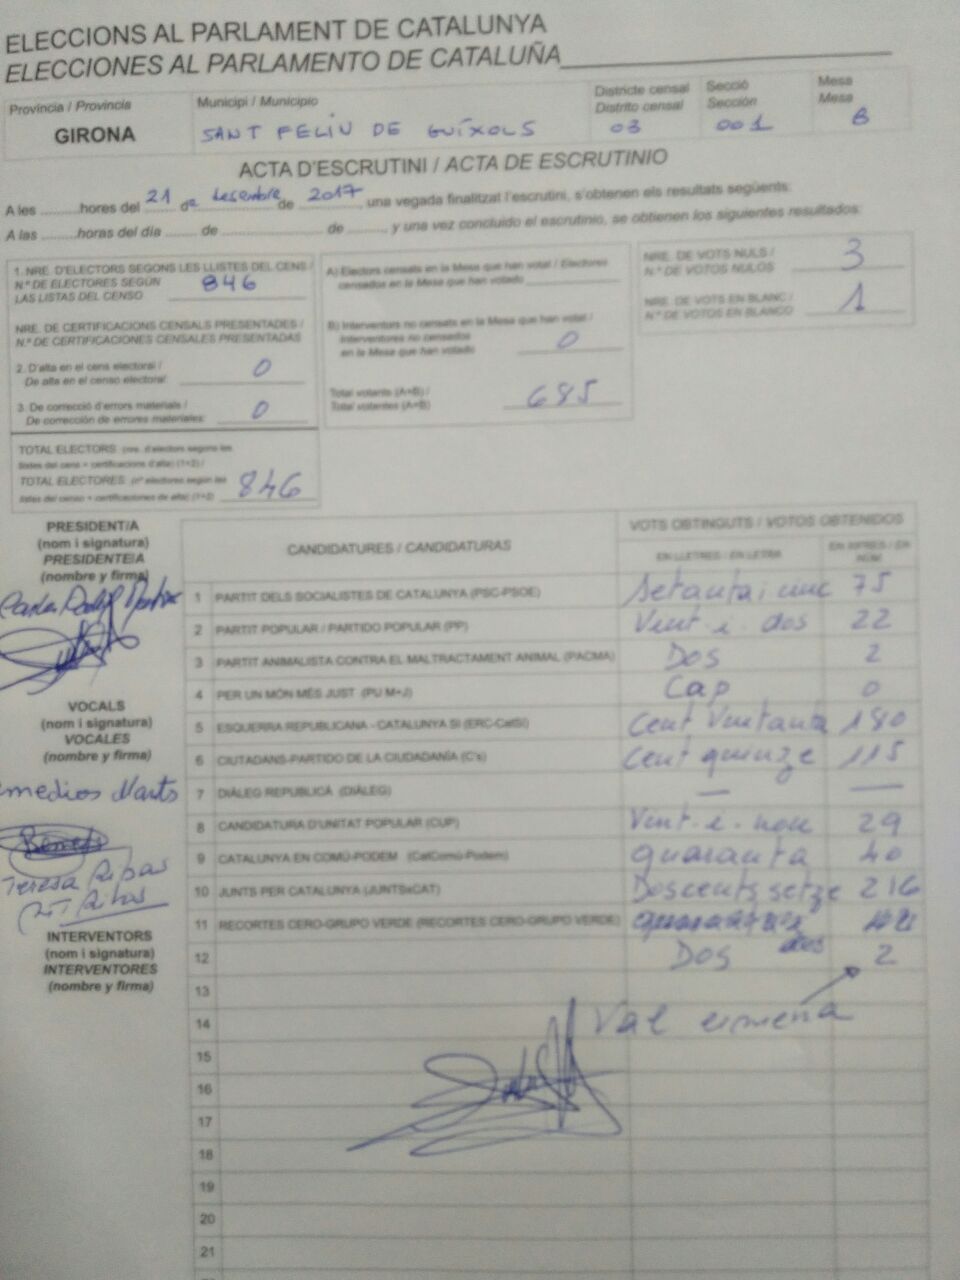 ELECCIONS AL PARLAMENT DE CATALUNYA
ELECCIONES AL PARLAMENTO DE CATALUÑA
Provincia / Provincia
GIRONA
Municipi / Municipio
SANT FELIU DE GUÍXOLS
Districte censal
Distrito censal
03
Secció
Sección
001
Mesa
Mesa
B
ACTA D'ESCRUTINI / ACTA DE ESCRUTINIO
A les ..........hores del 21 de desembre de 2017 una vegada finalitzat l'escrutini, s'obtenen els resultats següents:
A las ..........horas del día ........ de .......................... de .......... y una vez concluido el escrutinio, se obtienen los siguientes resultados:
1. NRE. D'ELECTORS SEGONS LES LLISTES DEL CENS /
N.º DE ELECTORES SEGÚN
LAS LISTAS DEL CENSO
846
NRE. DE CERTIFICACIONS CENSALS PRESENTADES /
N.º DE CERTIFICACIONES CENSALES PRESENTADAS
2. D'alta en el cens electoral /
De alta en el censo electoral:
0
3. De correcció d'errors materials /
De corrección de errores materiales:
0
TOTAL ELECTORS (nre. d'electors segons les
llistes del cens + certificacions d'alta) (1+2) /
TOTAL ELECTORES (nº electores según las
listas del censo + certificaciones de alta) (1+2)
846
A) Electors censats en la Mesa que han votat / Electores
censados en la Mesa que han votado
B) Interventors no censats en la Mesa que han votat /
Interventores no censados
en la Mesa que han votado
0
Total votants (A+B) /
Total votantes (A+B)
685
NRE. DE VOTS NULS /
N.º DE VOTOS NULOS
3
NRE. DE VOTS EN BLANC /
N.º DE VOTOS EN BLANCO
1
PRESIDENT/A
(nom i signatura)
PRESIDENTE/A
(nombre y firma)
VOCALS
(nom i signatura)
VOCALES
(nombre y firma)
Teresa Ribas
INTERVENTORS
(nom i signatura)
INTERVENTORES
(nombre y firma)
CANDIDATURES / CANDIDATURAS
VOTS OBTINGUTS / VOTOS OBTENIDOS
EN LLETRES / EN LETRA
EN XIFRES / EN NÚM.
1 PARTIT DELS SOCIALISTES DE CATALUNYA (PSC-PSOE) Setanta i cinc 75
2 PARTIT POPULAR / PARTIDO POPULAR (PP) Vint-i-dos 22
3 PARTIT ANIMALISTA CONTRA EL MALTRACTAMENT ANIMAL (PACMA) Dos 2
4 PER UN MÓN MÉS JUST (PUM+J) Cap 0
5 ESQUERRA REPUBLICANA - CATALUNYA SÍ (ERC-CatSí) Cent 180
6 CIUTADANS-PARTIDO DE LA CIUDADANÍA (C's) Cent quinze 115
7 DIÀLEG REPUBLICÀ (DIÀLEG) — —
8 CANDIDATURA D'UNITAT POPULAR (CUP) Vint-i-nou 29
9 CATALUNYA EN COMÚ-PODEM (CatComú-Podem) quaranta 40
10 JUNTS PER CATALUNYA (JUNTSxCAT) Doscents setze 216
11 RECORTES CERO-GRUPO VERDE (RECORTES CERO-GRUPO VERDE)
12 Dos 2
13
14 Val esmena
15
16
17
18
19
20
21